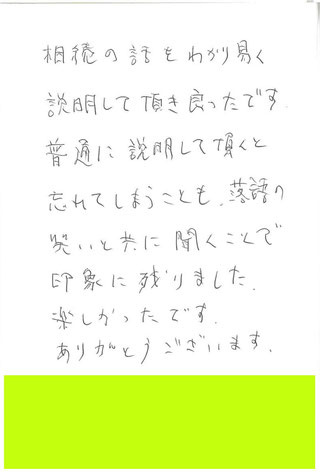 相続の話をわかり易く
説明して頂き良ったです.
普通に説明して頂くと
忘れてしまうことも、落語の
笑いと共に聞くことで
印象に残りました.
楽しかったです.
ありがとうございます.